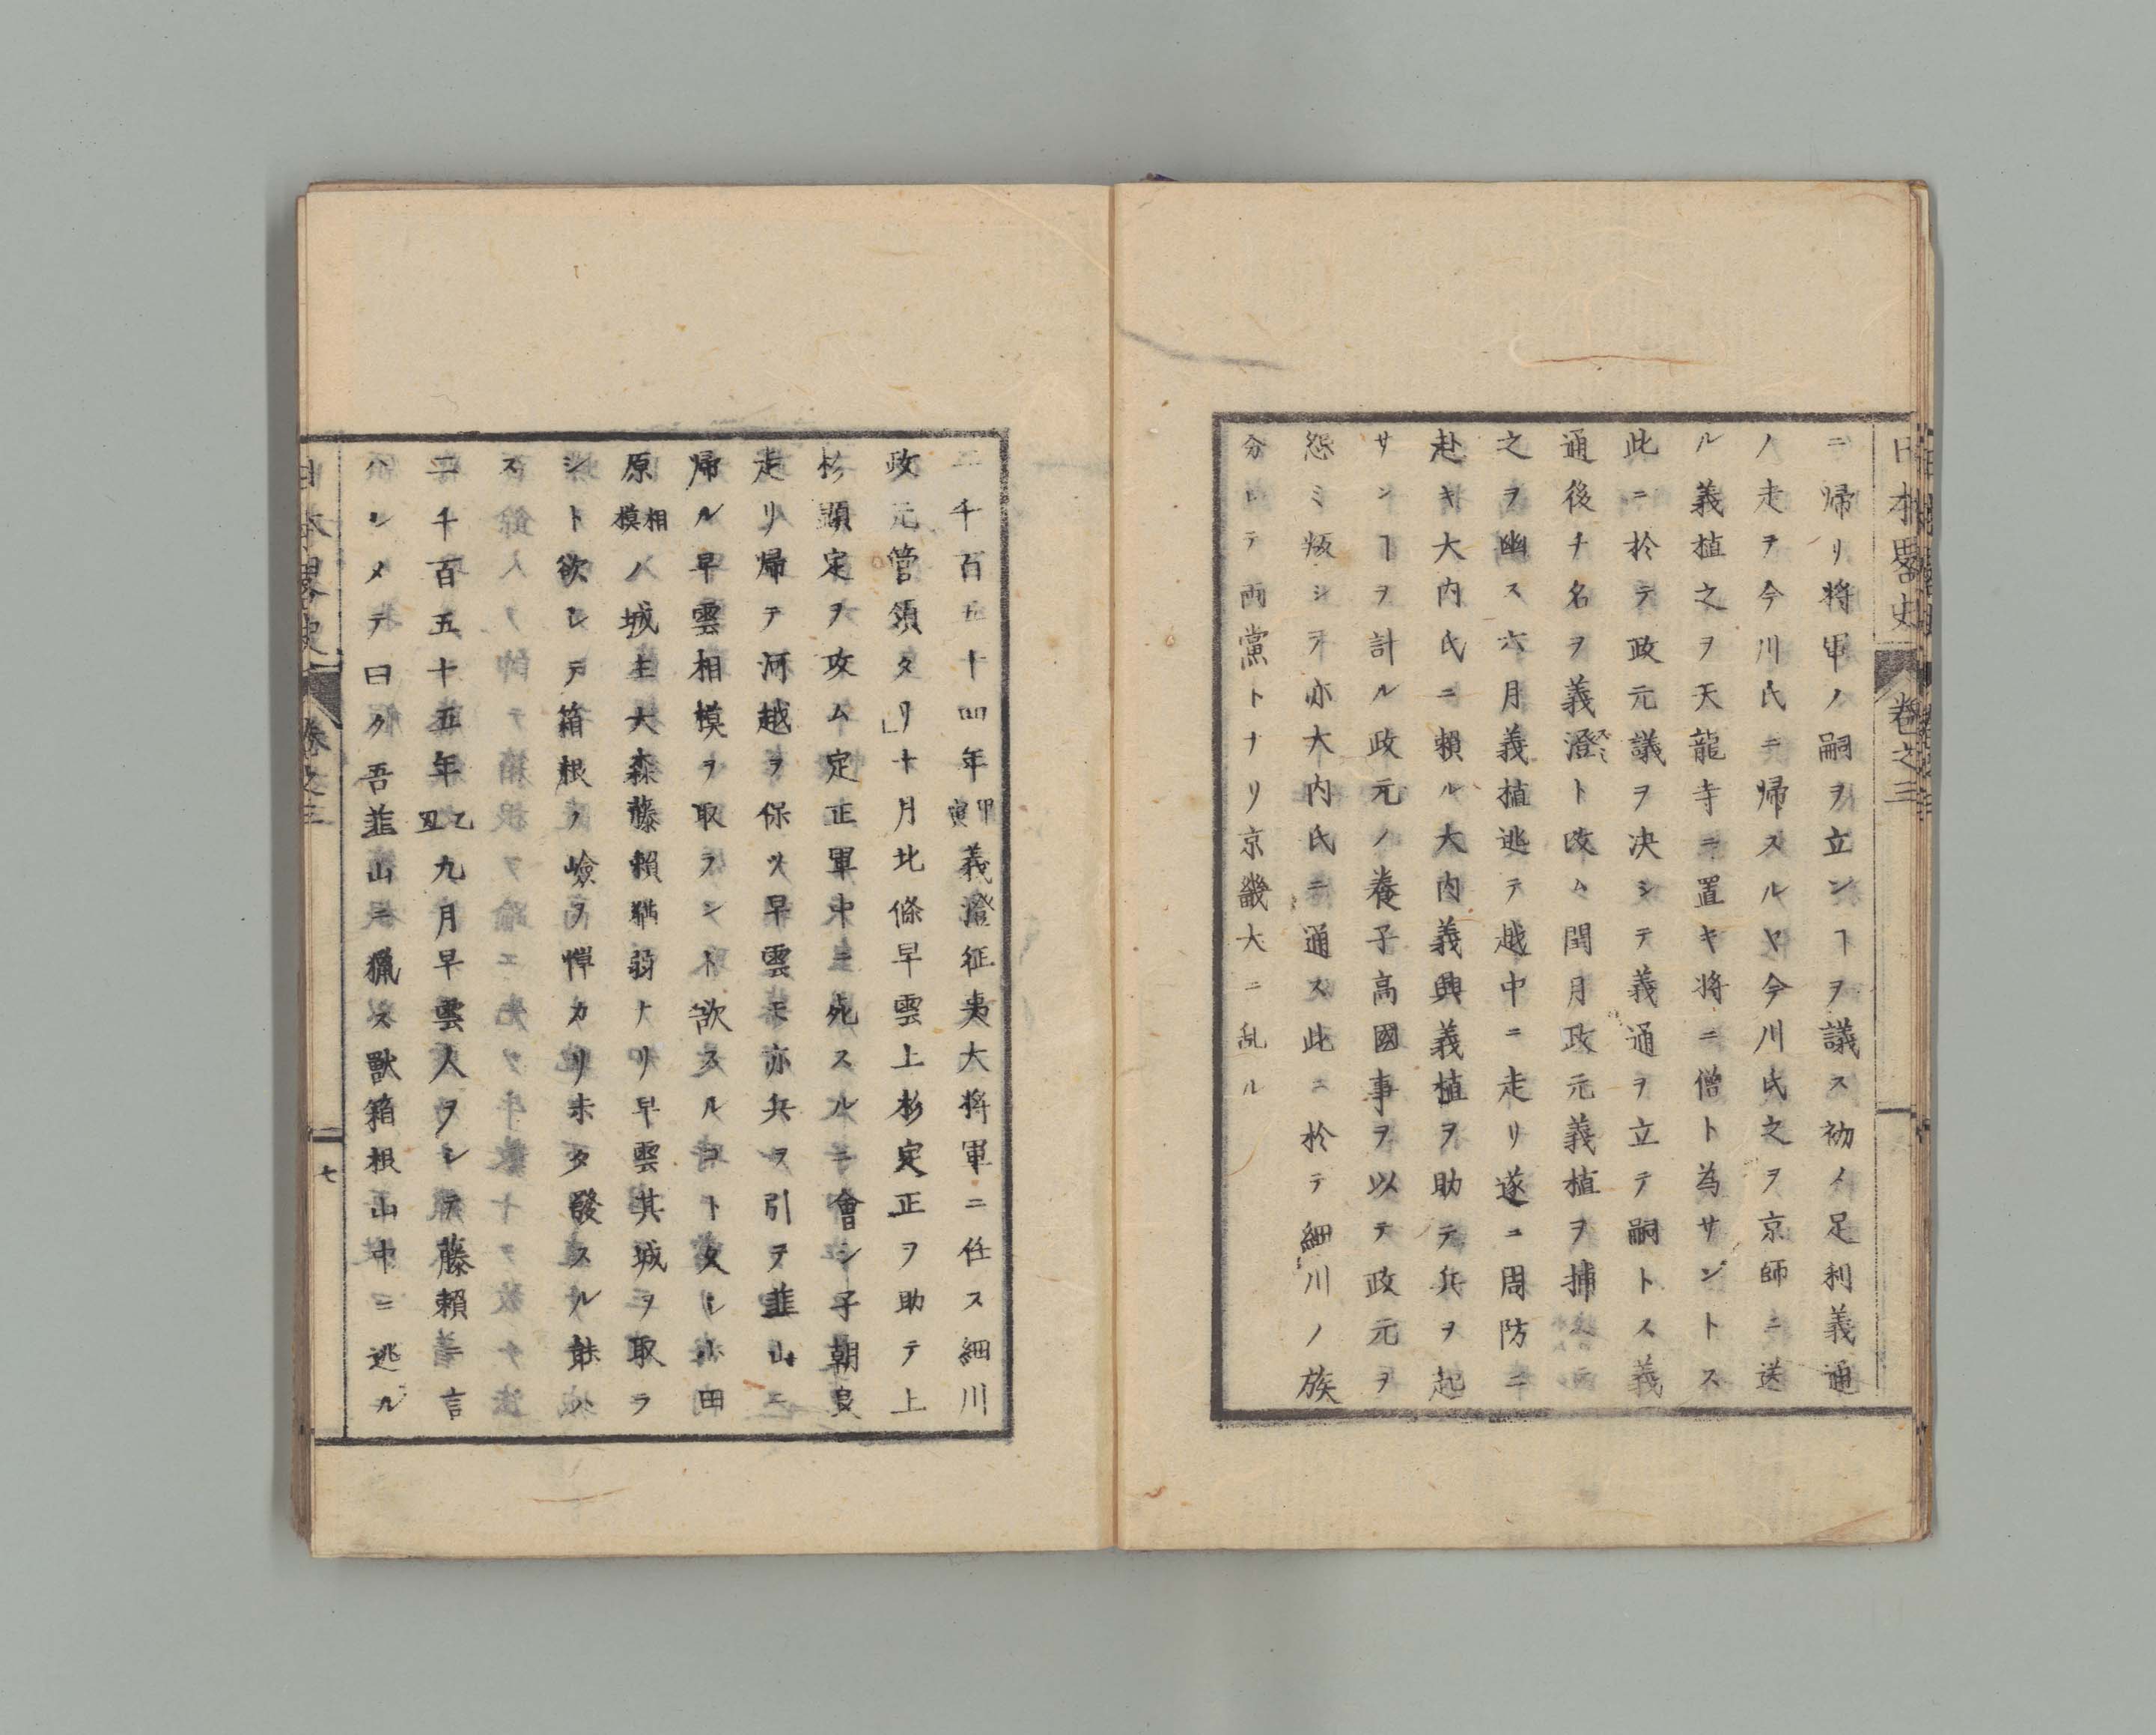 日本畧史 卷之三
ニ帰リ将軍ノ嗣ヲ立ンヿヲ議ス初メ足利義通
ノ走ヲ今川氏ニ帰スルヤ今川氏之ヲ京師ニ送
ル義植之ヲ天龍寺ニ置キ将ニ僧ト為サントス
此ニ於テ政元議ヲ决シテ義通ヲ立テ嗣トス義
通後チ名ヲ義澄ト改ム閏月政元義植ヲ捕
之ヲ幽ス六月義植逃テ越中ニ走リ遂ニ周防ニ
赴キ大内氏ニ頼ル大内義興義植ヲ助テ兵ヲ起
サンヿヲ計ル政元ノ養子高國事ヲ以テ政元ヲ
怨ミ叛シヲ亦大内氏ニ通ス此ニ於テ細川ノ族
分レテ両黨トナリ京畿大ニ乱ル
二千百五十四年甲寅義澄征夷大将軍ニ任ス細川
政元管領タリ」十月北條早雲上杉定正ヲ助テ上
杉顕定ヲ攻ム定正軍中ニ死スルニ會シ子朝良
走リ帰テ河越ヲ保ツ早雲モ亦兵ヲ引ヲ韮山ニ
帰ル早雲相模ヲ取ラント欲スルコト久シ小田
原相模ノ城主大森藤頼猶弱ナリ早雲其城ヲ取ラ
ント欲レテ箱根ノ嶮ヲ憚カリ未タ發スル能ハ
ス
二千百五十五年乙卯九月早雲人ヲシテ藤頼ニ言
ハシメテ曰ク吾韮山ニ獵ス獸箱根山中ニ逃ル
日本畧史 卷之三 七